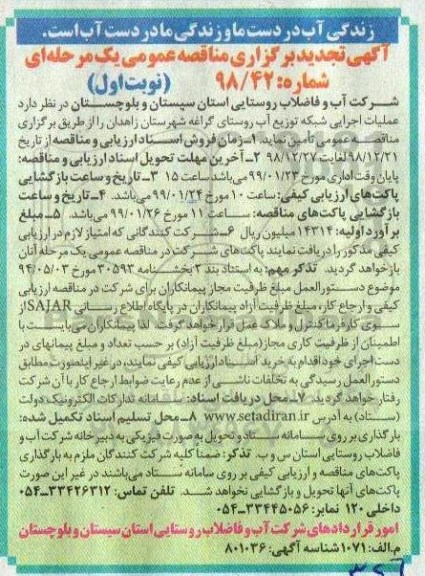 زندگی آب در دست ما و زندگی ما در دست آب است.
آگهی تجدید برگزاری مناقصه عمومی یک مرحله‌ای
شماره: ۹۸/۴۲ (نوبت اول)
شرکت آب و فاضلاب روستایی استان سیستان و بلوچستان در نظر دارد
عملیات اجرایی شبکه توزیع آب روستای گراغه شهرستان زاهدان را از طریق برگزاری
مناقصه عمومی تأمین نماید. ۱ـ زمان فروش اسناد ارزیابی و مناقصه: از تاریخ
۹۸/۱۲/۲۱ لغایت ۹۸/۱۲/۲۷ ۲ـ آخرین مهلت تحویل اسناد ارزیابی و مناقصه:
پایان وقت اداری مورخ ۹۹/۰۱/۲۳ می‌باشد ساعت ۱۵ ۳ـ تاریخ و ساعت بازگشایی
پاکت‌های ارزیابی کیفی: ساعت ۱۰ مورخ ۹۹/۰۱/۲۴ می‌باشد. ۴ـ تاریخ و ساعت
بازگشایی پاکت‌های مناقصه: ساعت ۱۱ مورخ ۹۹/۰۱/۲۶ می‌باشد. ۵ـ مبلغ
برآورد اولیه: ۱۴۳۱۴ میلیون ریال ۶ـ شرکت کنندگانی که امتیاز لازم در ارزیابی
کیفی مذکور را دریافت نمایند پاکت‌های شرکت در مناقصه عمومی یک مرحله‌ای آنان
بازخواهد گردید. تذکر مهم: به استناد بند ۳ بخشنامه ۳۰۵۹۳ مورخ ۹۴/۰۵/۰۳
موضوع دستورالعمل مبلغ ظرفیت مجاز پیمانکاران برای شرکت در مناقصه ارزیابی
کیفی و ارجاع کار، مبلغ ظرفیت آزاد پیمانکاران در پایگاه اطلاع رسانی SAJAR از
سوی کارفرما کنترل و ملاک عمل قرار خواهد گرفت. لذا پیمانکاران می‌بایست با
اطمینان از ظرفیت کاری مجاز (مبلغ ظرفیت آزاد) بر حسب تعداد و مبلغ پیمانهای در
دست اجرای خود اقدام به خرید اسناد ارزیابی کیفی نمایند، در غیر اینصورت مطابق
دستورالعمل رسیدگی به تخلفات ناشی از عدم رعایت ضوابط ارجاع کار با آن شرکت
رفتار خواهد گردید. ۷ـ محل دریافت اسناد: سامانه تدارکات الکترونیک دولت
(ستاد) به آدرس www.setadiran.ir ۸ـ محل تسلیم اسناد تکمیل شده:
بارگذاری بر روی سامانه ستاد و تحویل به صورت فیزیکی به دبیرخانه شرکت آب و
فاضلاب روستایی استان س و ب. تذکر: ضمنا کلیه شرکت کنندگان ملزم به بارگذاری
پاکت‌های مناقصه و ارزیابی کیفی بر روی سامانه ستاد می‌باشند در غیر این صورت
پاکت‌های آنها تحویل و بازگشایی نخواهد شد. تلفن تماس: ۳۳۴۲۶۳۱۲-۰۵۴
داخلی ۱۲۰ نمابر: ۳۳۴۴۵۰۵۶-۰۵۴
امور قراردادهای شرکت آب و فاضلاب روستایی استان سیستان و بلوچستان
م.الف: ۱۰۷۱ شناسه آگهی: ۸۰۱۰۳۶